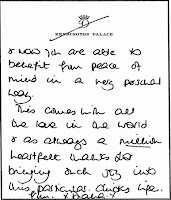 KENSINGTON PALACE
& now you are able to
benefit from peace of
mind in a very personal
way.
This comes with all
the love in the world
& as always a million
heartfelt thanks for
bringing such joy into
this particular chicks life.
from Diana x